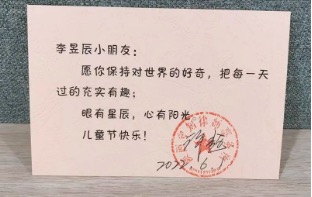 李昱辰小朋友：
愿你保持对世界的好奇，把每一天
过的充实有趣；
眼有星辰，心有阳光
儿童节快乐！
2022.6.1